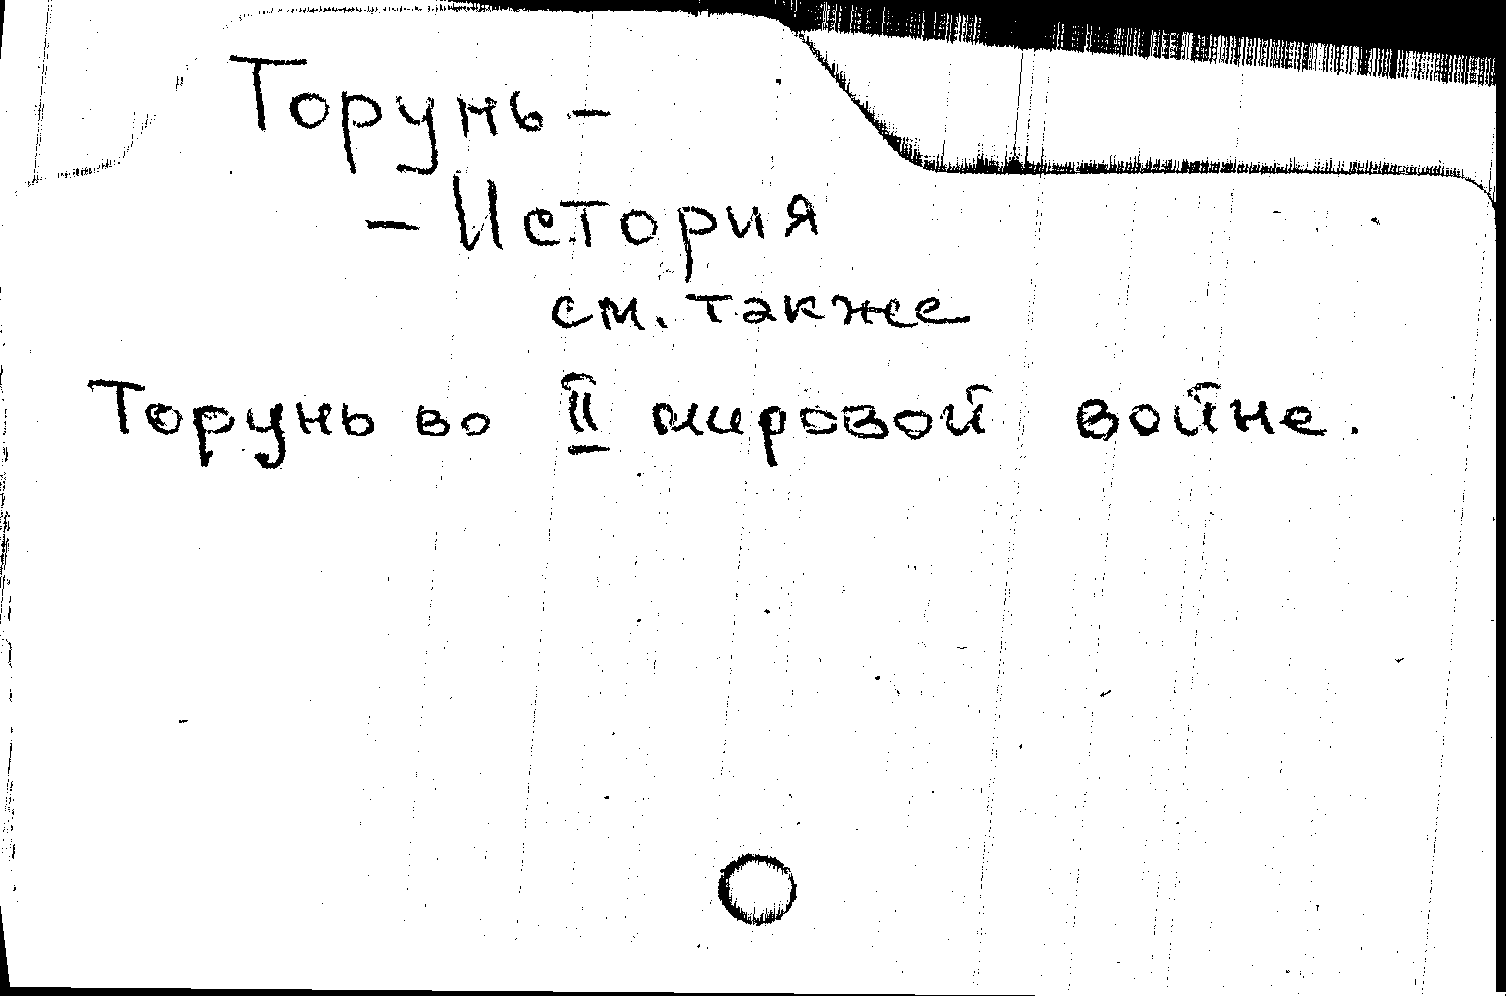 Торунь -
- История
см. также
Торунь во II мировой войне.